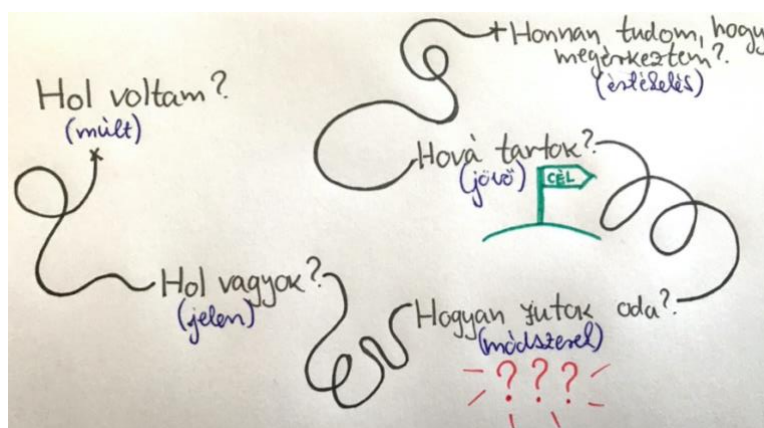 Hol voltam?
(múlt)
Hol vagyok?
(jelen)
Hogyan jutok oda?
(módszerel)
???
Hová tartok?
(jövő)
CÉL
Honnan tudom, hogy
megérkeztem?
(értékelés)